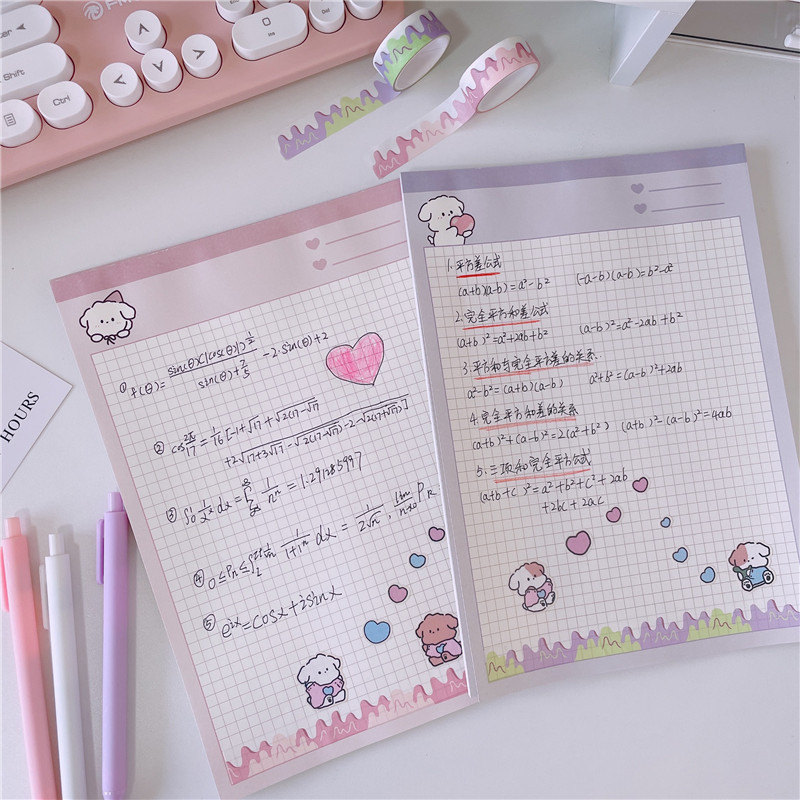 Shift
Ctrl
HOURS
① f(θ)= sin(θ)√(|cos(θ)|)^{1/2} / sin(θ)+7/5 -2·sin(θ)+2
② cos 2π/17 = 1/16 [-1+√17 +√2(17-√17)
+2√17+3√17-√2(17-√17)-2-√2(17+√17)]
③ ∫₀¹ 1/xˣ dx = 1/nⁿ = 1.291285997
④ 0≤Pn≤ 1/1+tⁿ dx = 1/2√n , lim n→0 Pn
⑤ e^{ix}=cosx+isinx
1.平方差公式
(a+b)(a-b)=a²-b² (-a-b)(a-b)=b²-a²
2.完全平方和差公式
(a+b)²=a²+2ab+b² (a-b)²=a²-2ab+b²
3.平方和与完全平方差的关系
a²-b²=(a+b)(a-b) a²+b²=(a-b)²+2ab
4.完全平方和差的关系
(a+b)²+(a-b)²=2(a²+b²) (a+b)²-(a-b)²=4ab
5.三项和完全平方公式
(a+b+c)²=a²+b²+c²+2ab
+2bc+2ac